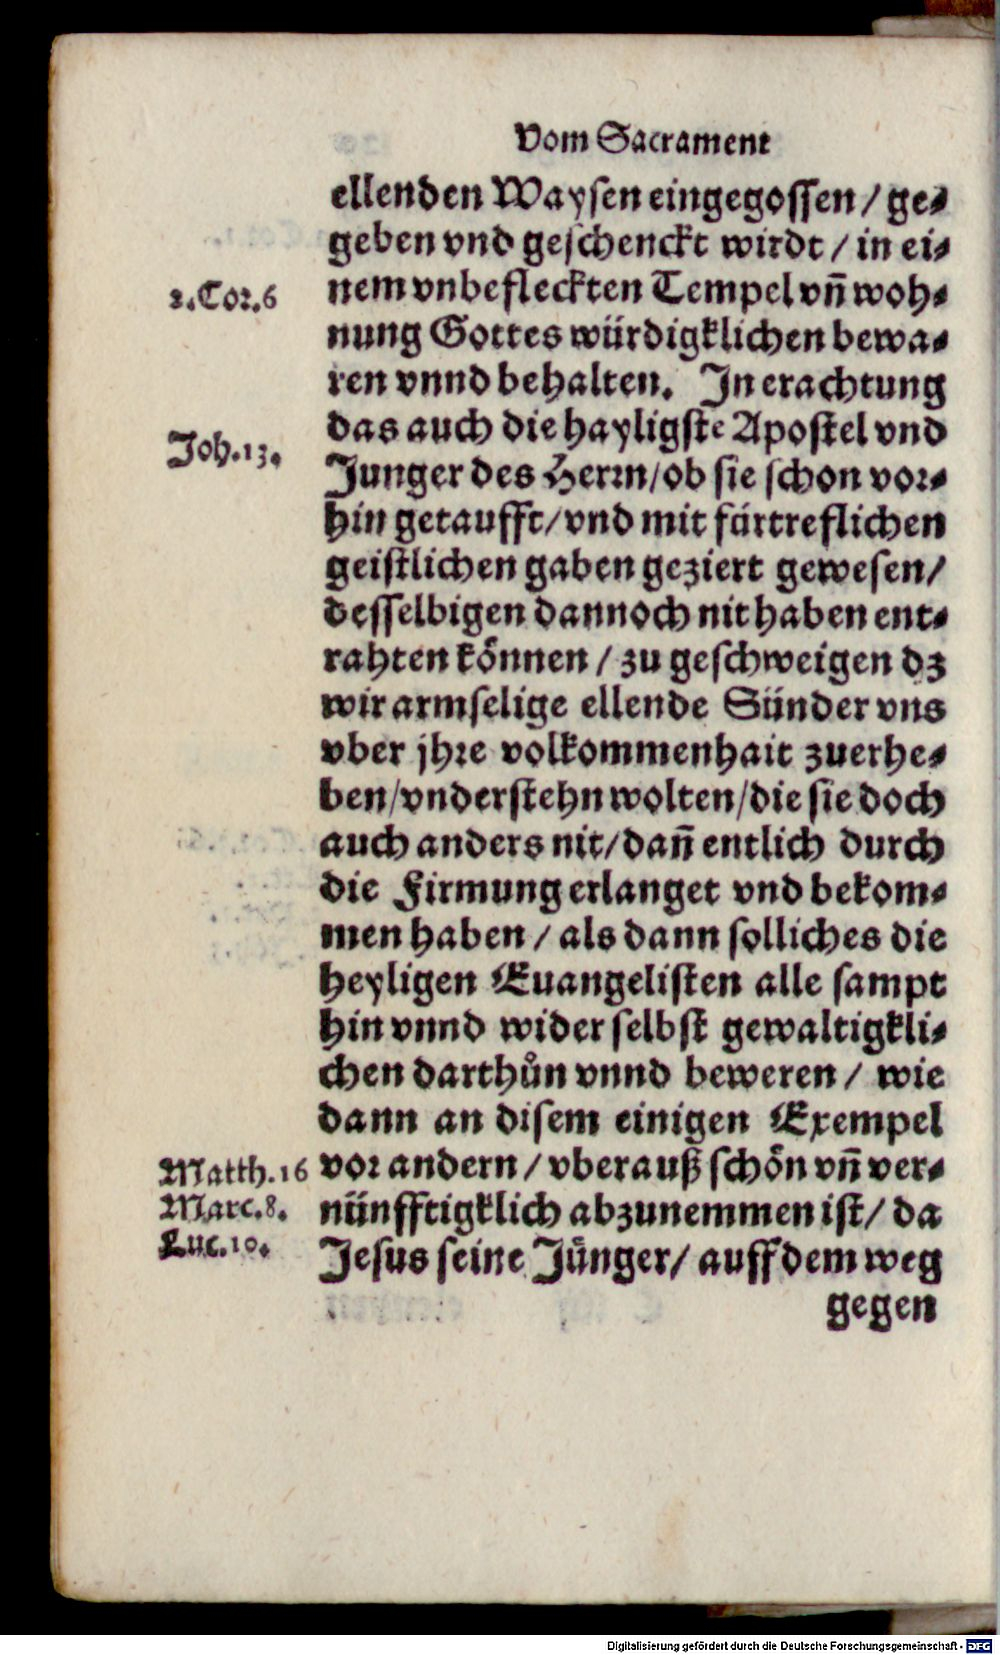 Vom Sacrament
ellenden Waysen eingegossen / ge-
geben vnd geschenckt wirdt / in ei-
2.Cor.6
nem vnbefleckten Tempel vñ woh-
nung Gottes würdigklichen bewa-
ren vnnd behalten. In erachtung
das auch die hayligste Apostel vnd
Joh.13.
Junger des Herrn/ob sie schon vor-
hin getaufft/vnd mit fürtreflichen
geistlichen gaben geziert gewesen/
desselbigen dannoch nit haben ent-
rahten können / zu geschweigen dz
wir armselige ellende Sünder vns
vber jhre volkommenhait zuerhe-
ben/vnderstehn wolten/die sie doch
auch anders nit/dañ entlich durch
die Firmung erlanget vnd bekom-
men haben / als dann solliches die
heyligen Euangelisten alle sampt
hin vnnd wider selbst gewaltigkli-
chen darthůn vnnd beweren / wie
dann an disem einigen Exempel
Matth.16
vor andern / vberauß schön vñ ver-
Marc.8.
nünfftigklich abzunemmen ist/ da
Luc.10.
Jesus seine Jünger/ auff dem weg
gegen
Digitalisierung gefördert durch die Deutsche Forschungsgemeinschaft - DFG